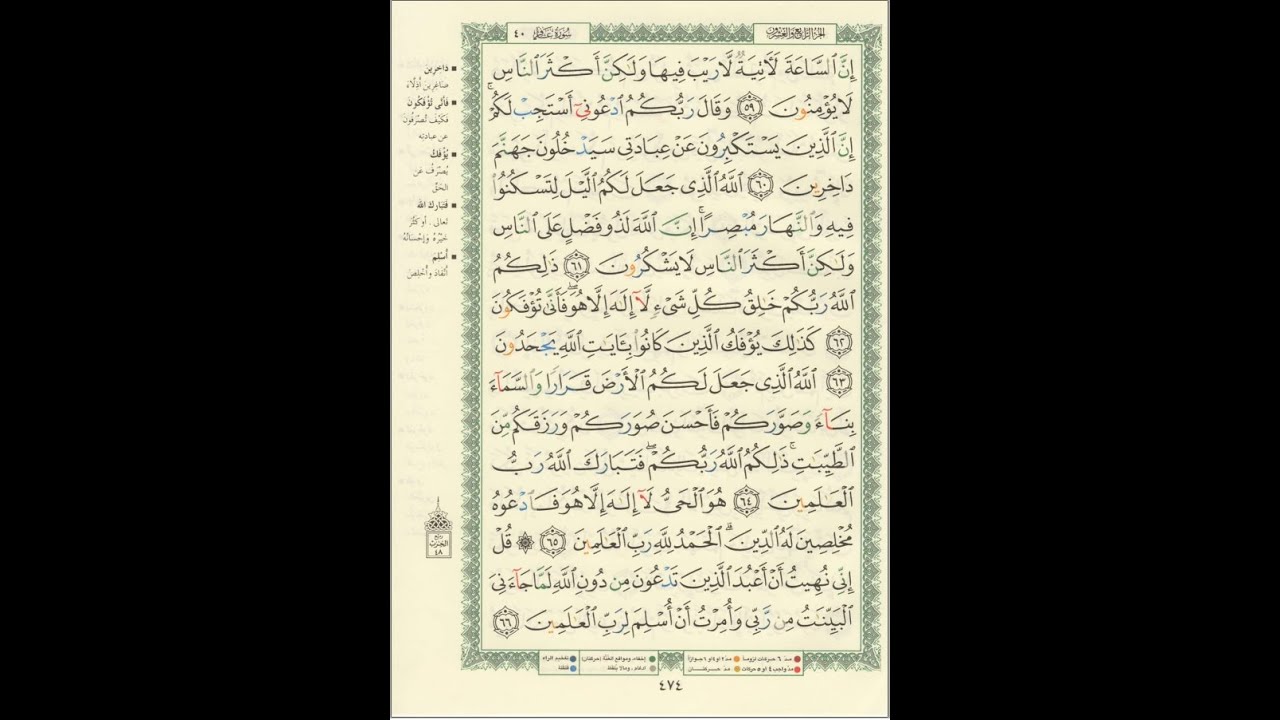 الجزء الرابع والعشرون
سورة غافر ٤٠
إِنَّ ٱلسَّاعَةَ لَأٓتِيَةٌ لَّا رَيْبَ فِيهَا وَلَٰكِنَّ أَكْثَرَ ٱلنَّاسِ
لَا يُؤْمِنُونَ ٥٩ وَقَالَ رَبُّكُمُ ٱدْعُونِىٓ أَسْتَجِبْ لَكُمْ ۚ
إِنَّ ٱلَّذِينَ يَسْتَكْبِرُونَ عَنْ عِبَادَتِى سَيَدْخُلُونَ جَهَنَّمَ
دَاخِرِينَ ٦٠ ٱللَّهُ ٱلَّذِى جَعَلَ لَكُمُ ٱلَّيْلَ لِتَسْكُنُوا۟
فِيهِ وَٱلنَّهَارَ مُبْصِرًا ۚ إِنَّ ٱللَّهَ لَذُو فَضْلٍ عَلَى ٱلنَّاسِ
وَلَٰكِنَّ أَكْثَرَ ٱلنَّاسِ لَا يَشْكُرُونَ ٦١ ذَٰلِكُمُ
ٱللَّهُ رَبُّكُمْ خَٰلِقُ كُلِّ شَىْءٍ لَّآ إِلَٰهَ إِلَّا هُوَ ۖ فَأَنَّىٰ تُؤْفَكُونَ
٦٢ كَذَٰلِكَ يُؤْفَكُ ٱلَّذِينَ كَانُوا۟ بِـَٔايَٰتِ ٱللَّهِ يَجْحَدُونَ
٦٣ ٱللَّهُ ٱلَّذِى جَعَلَ لَكُمُ ٱلْأَرْضَ قَرَارًا وَٱلسَّمَآءَ
بِنَآءً وَصَوَّرَكُمْ فَأَحْسَنَ صُوَرَكُمْ وَرَزَقَكُم مِّنَ
ٱلطَّيِّبَٰتِ ۚ ذَٰلِكُمُ ٱللَّهُ رَبُّكُمْ ۖ فَتَبَارَكَ ٱللَّهُ رَبُّ
ٱلْعَٰلَمِينَ ٦٤ هُوَ ٱلْحَىُّ لَآ إِلَٰهَ إِلَّا هُوَ فَٱدْعُوهُ
مُخْلِصِينَ لَهُ ٱلدِّينَ ۗ ٱلْحَمْدُ لِلَّهِ رَبِّ ٱلْعَٰلَمِينَ ٦٥ ۞ قُلْ
إِنِّى نُهِيتُ أَنْ أَعْبُدَ ٱلَّذِينَ تَدْعُونَ مِن دُونِ ٱللَّهِ لَمَّا جَآءَنِىَ
ٱلْبَيِّنَٰتُ مِن رَّبِّى وَأُمِرْتُ أَنْ أُسْلِمَ لِرَبِّ ٱلْعَٰلَمِينَ ٦٦
■ دَاخِرِينَ
صَاغِرِينَ أَذِلَّاءَ
■ فَأَنَّى تُؤْفَكُونَ
فَكَيْفَ تُصْرَفُونَ
عن عبادته
■ يُؤْفَكُ
يُصْرَفُ عَنِ
الحَقِّ
■ فَتَبَارَكَ الله
تعالى . أو كَثُرَ
خَيْرُهُ وإحْسَانُهُ
■ أُسْلِمَ
أنْقَادَ وأُخْلِصَ
ربع
الحزب
٤٨
مدّ ٦ حركات لزوماً
مدّ ٢ او ٤ او ٦ جوازاً
إخفاء، ومواقع الغُنَّة (حركتان)
تفخيم الراء
مدّ واجب ٤ أو ٥ حركات
مدّ حركتان
ادغام ، ومالا يُلفظ
قلقلة
٤٧٤